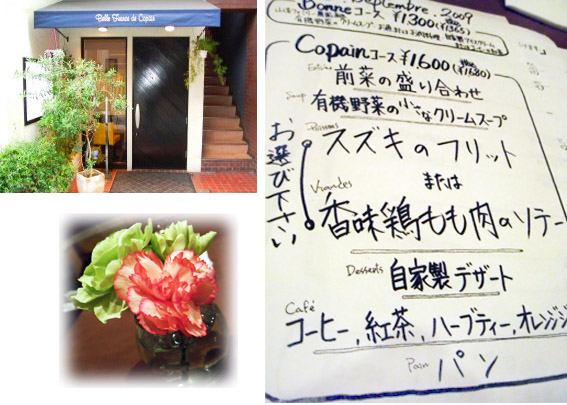 Belle France de Copain
Septembre. 2009
Bonneコース ¥1300(¥1365)
Copainコース¥1600(¥1680)
Entrées
前菜の盛り合わせ
Soup
有機野菜の小さなクリームスープ
Poissons
スズキのフリット
または
Viandes
香味鶏もも肉のソテー
お選び下さい
Desserts
自家製デザート
Café
コーヒー,紅茶,ハーブティー,オレンジジ
Pain
パン